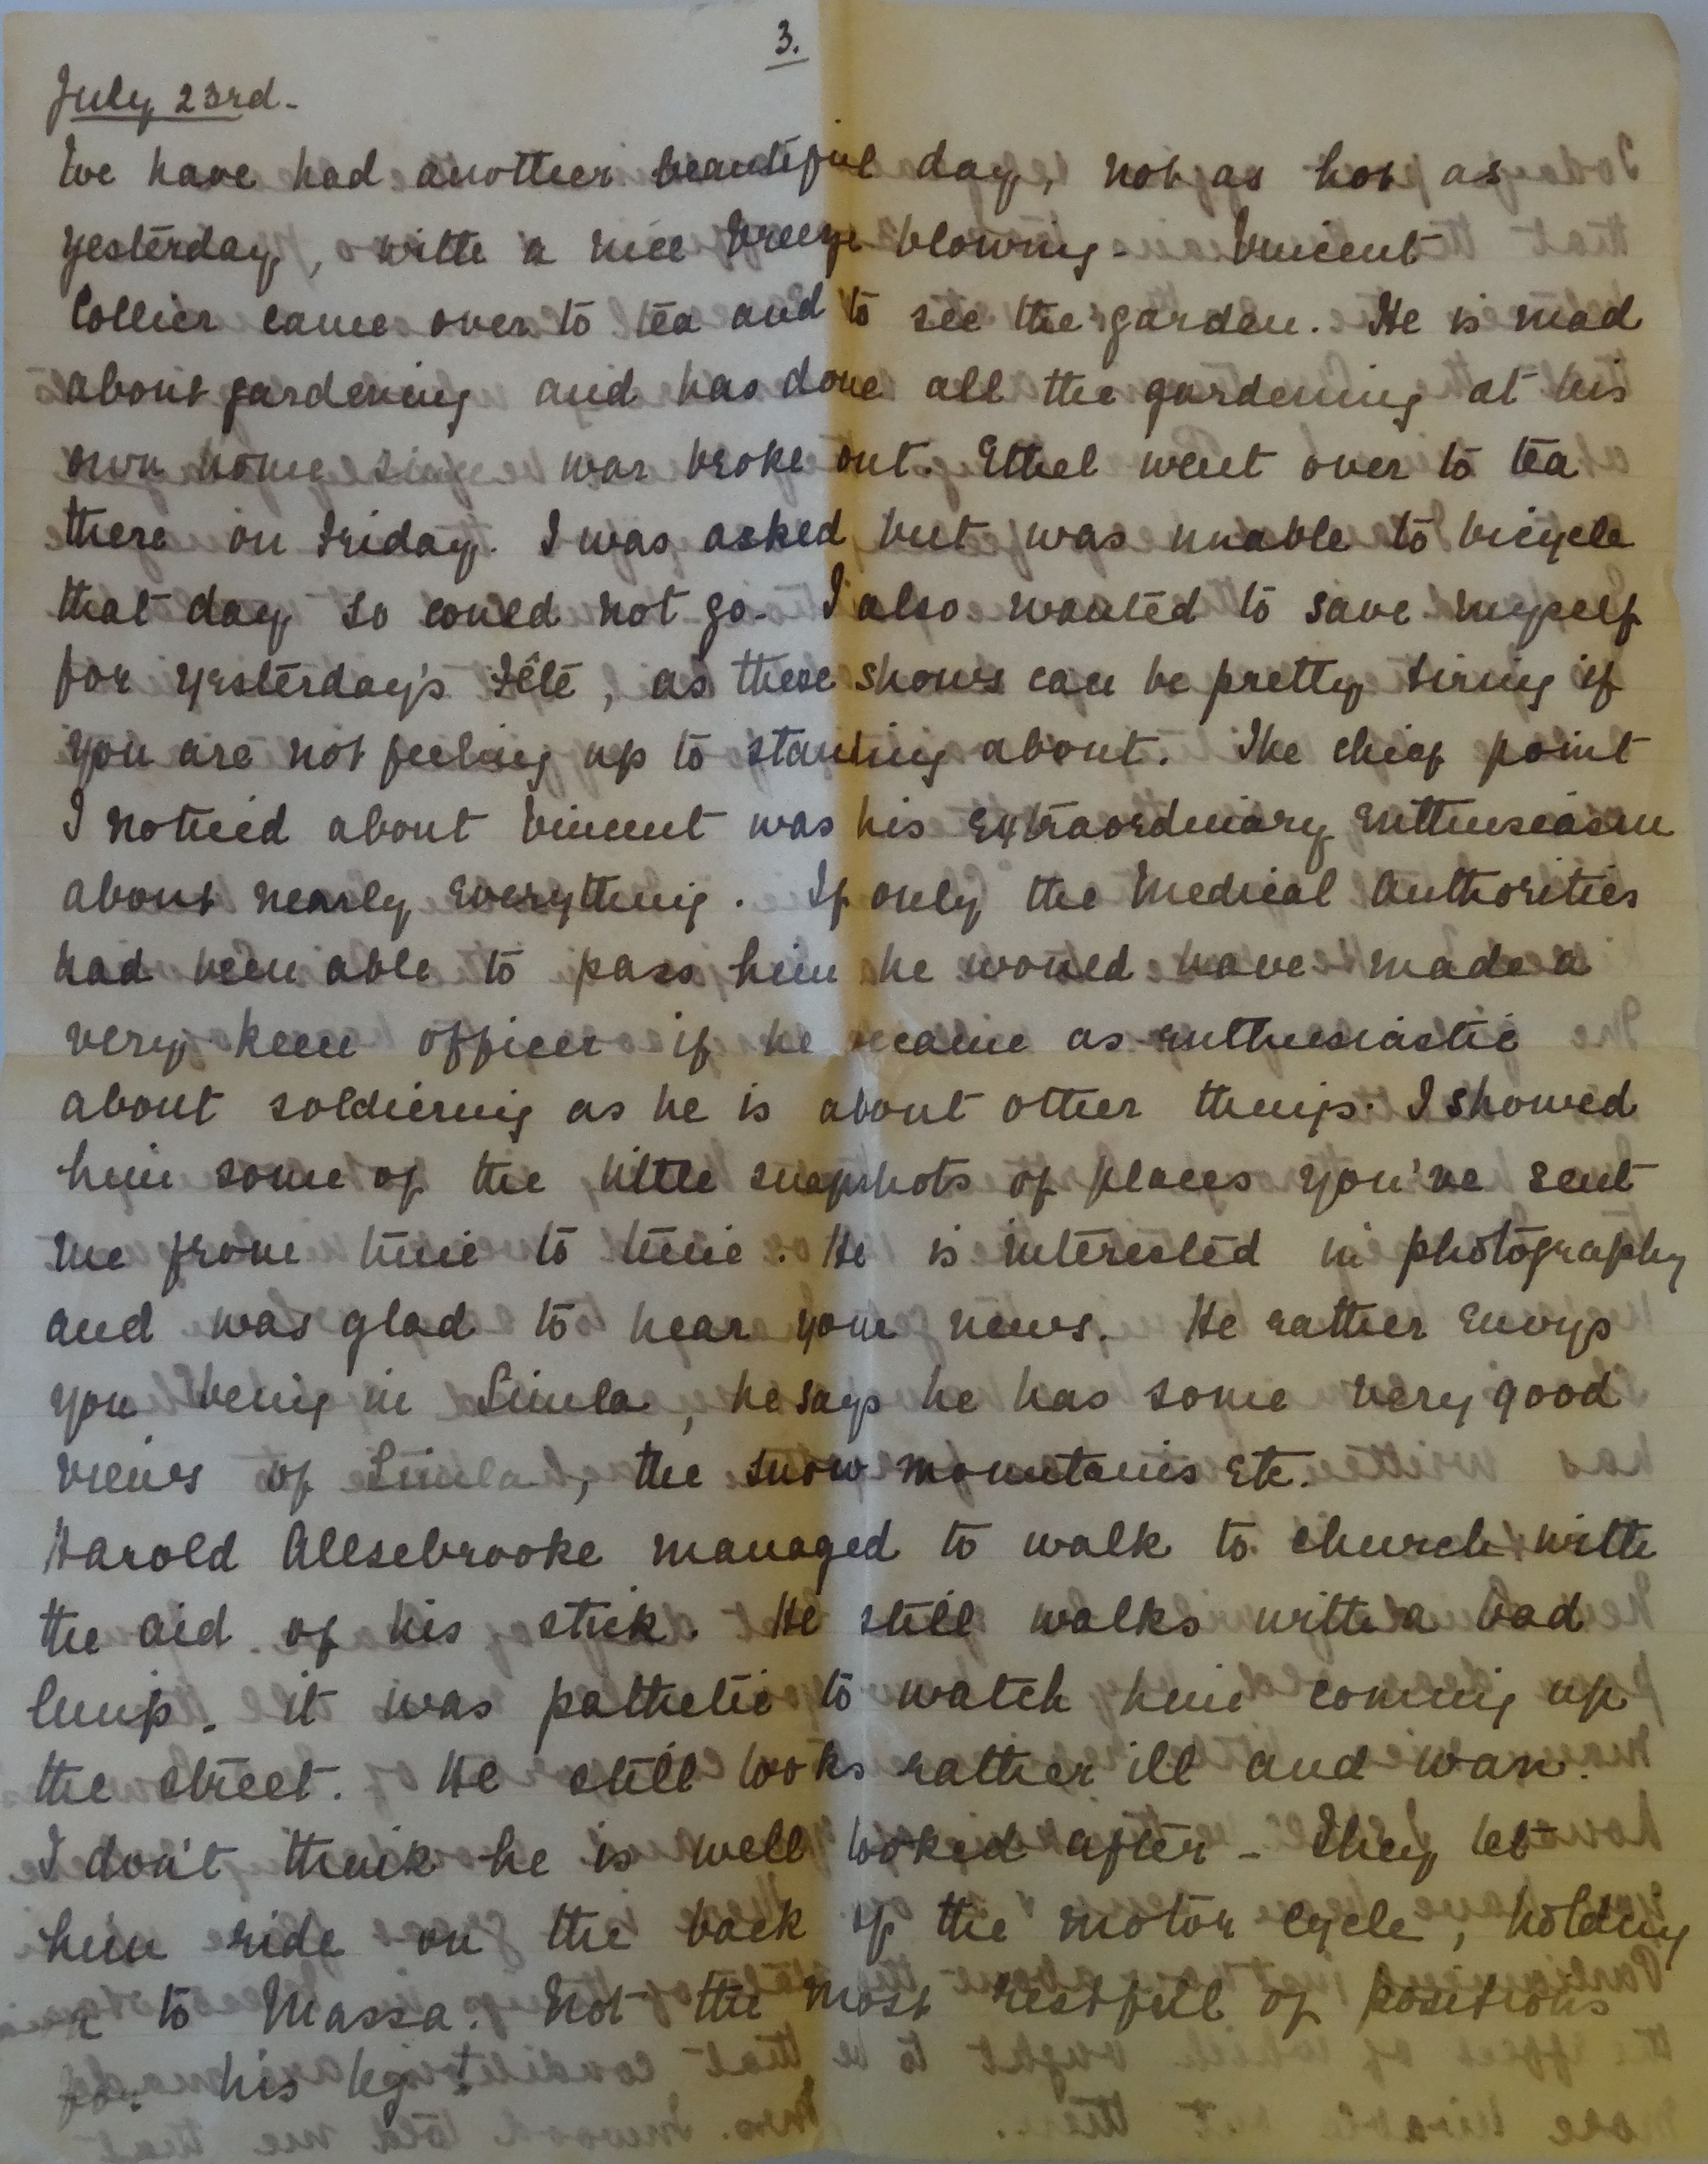 3.
July 23rd-
We have had another beautiful day, not as hot as
yesterday, with a nice breeze blowing- Vincent
Collier came over to tea and to see the garden. He is mad
about gardening and has done all the gardening at his
own home since war broke out. Ethel went over to tea
there on Friday. I was asked but was unable to bicycle
that day so could not go- I also wanted to save myself
for yesterday's Fête, as these shows can be pretty tiring if
you are not feeling up to standing about. The chief point
I noticed about Vincent was his extraordinary enthusiasm
about nearly everything. If only the Medical Authorities
had been able to pass him he would have made a
very keen officer if he became as enthusiastic
about soldiering as he is about other things. I showed
him some of the little snapshots of places you've sent
me from time to time. He is interested in photography
and was glad to hear your news. He rather envys
you being in Simla, he says he has some very good
views of Simla, the snow mountains etc.
Harold Allsebrooke managed to walk to church with
the aid of his stick. He still walks with a bad
limp. it was pathetic to watch him coming up
the street. He still looks rather ill and wan.
I don't think he is well looked after - They let
him ride on the back of the motor cycle, holding
to Massa. Not the most restful of positions
for his leg!